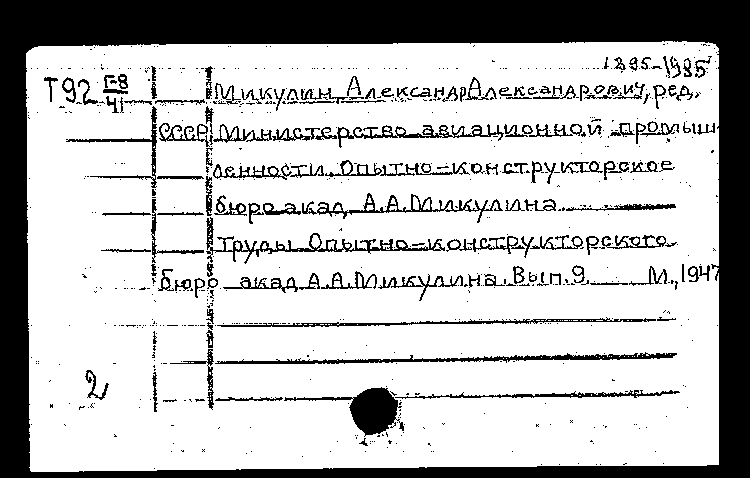 1895-1985
Т92 Г-8/41 Микулин, Александр Александрович, ред.
СССР Министерство авиационной промыш-
ленности. Опытно-конструкторское
бюро акад. А.А.Микулина
Труды Опытно-конструкторского
бюро акад. А.А.Микулина. Вып.9. М., 1947
2